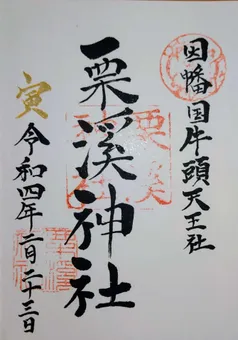 因幡国牛頭天王社
栗溪神社
寅
令和四年 二月二十三日